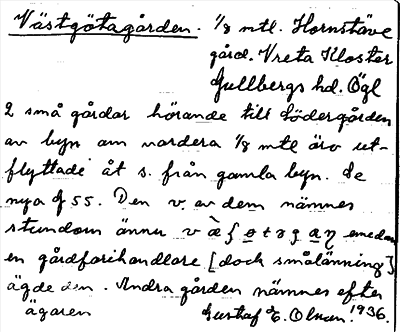 Västgötagården. 1/8 mtl. Hornstäve
gård. Vreta Kloster
Gullbergs hd. Ögl
2 små gårdar hörande till Södergården
av byn om vardera 1/8 mtl äro ut-
flyttade åt s. från gamla byn. Se
nya f 55. Den v. av dem nämnes
stundom ännu emedan
en gårdfarihandlare [dock smålänning]
ägde den. Andra gården nämnes efter
ägaren Gustaf E. Olsson. 1936.